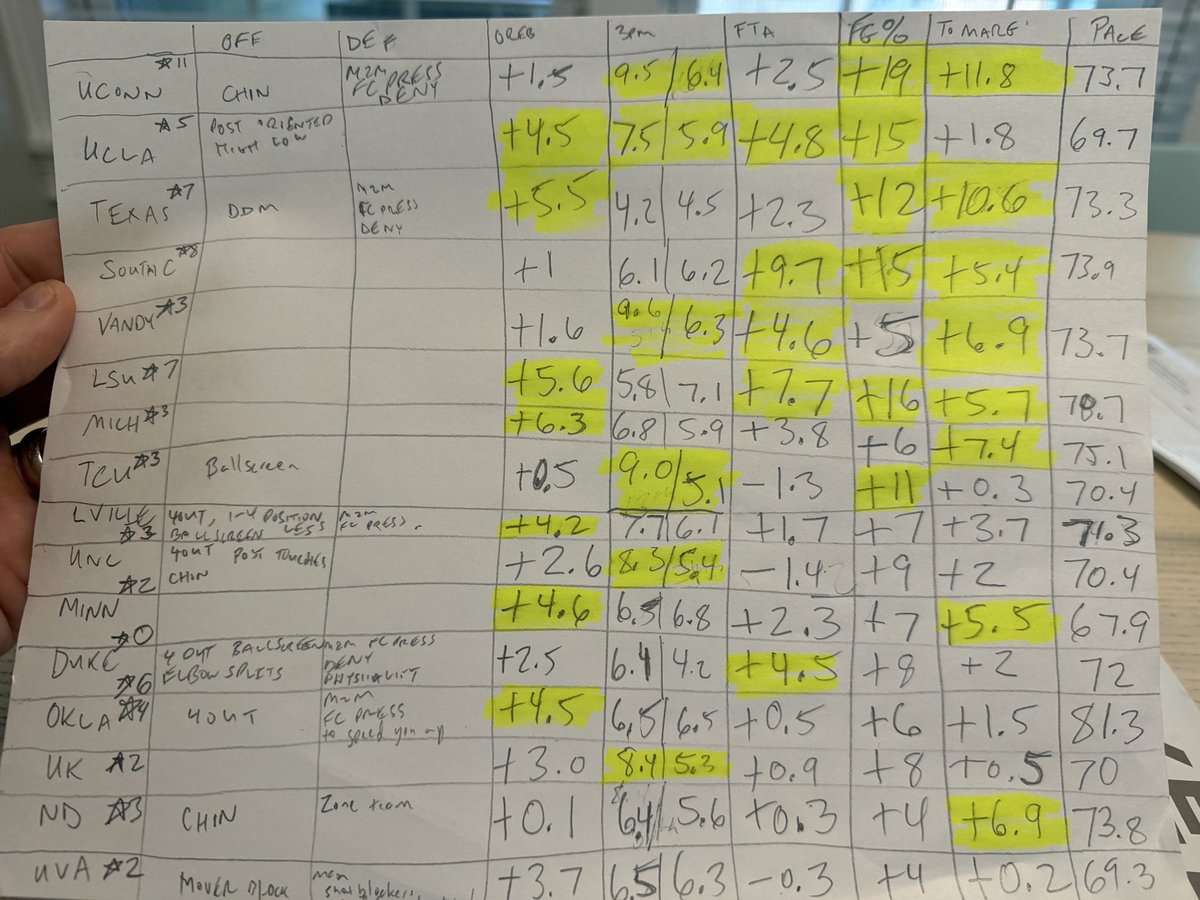 OFF DEF OREB 3PM FTA FG% TO MARG PACE
UCONN ☆11 CHIN M2M FC PRESS DENY +1.5 9.5 6.4 +2.5 +19 +11.8 73.7
UCLA ☆5 POST ORIENTED HIGH LOW +4.5 7.5 5.9 +4.8 +15 +1.8 69.7
TEXAS ☆7 DDM M2M FC PRESS DENY +5.5 4.2 4.5 +2.3 +12 +10.6 73.3
SOUTH C ☆8 +1 6.1 6.2 +9.7 +15 +5.4 73.9
VANDY ☆3 +1.6 9.6 6.3 +4.6 +5 +6.9 73.7
LSU ☆7 +5.6 5.8 7.1 +7.7 +16 +5.7 78.7
MICH ☆3 +6.3 6.8 5.9 +3.8 +6 +7.4 75.1
TCU ☆3 Ballscreen +0.5 9.0 5.1 -1.3 +11 +0.3 70.4
LVILLE ☆3 4OUT, 1-4 POSITION BALLSCREEN LESS M2M FC PRESS. +4.2 7.7 6.1 +1.7 +7 +3.7 71.3
UNC ☆2 4OUT POST TOUCHES CHIN +2.6 8.3 5.4 -1.4 +9 +2 70.4
MINN ☆0 +4.6 6.5 6.8 +2.3 +7 +5.5 67.9
DUKE ☆6 4 OUT BALLSCREEN ELBOW SPLITS M2M FC PRESS DENY PHYSICALITY +2.5 6.4 4.2 +4.5 +8 +2 72
OKLA ☆4 4OUT M2M FC PRESS to speed you up +4.5 6.5 6.5 +0.5 +6 +1.5 81.3
UK ☆2 +3.0 8.4 5.3 +0.9 +8 +0.5 70
ND ☆3 CHIN Zone team +0.1 6.4 5.6 +0.3 +4 +6.9 73.8
UVA ☆2 MOVER BLOCK M2M +3.7 6.5 6.3 -0.3 +4 +0.2 69.3